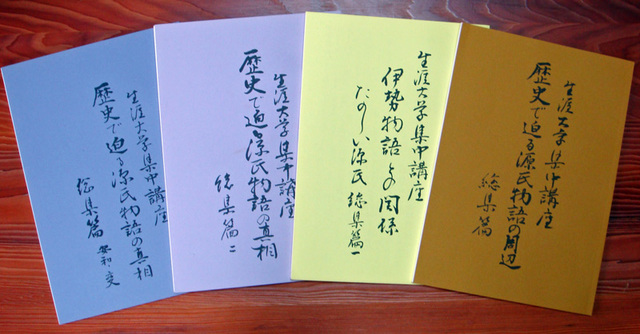 生涯大学集中講座
歴史で迫る源氏物語の真相
総集篇 安和の変
生涯大学集中講座
歴史で迫る源氏物語の真相
総集篇 二
生涯大学集中講座
伊勢物語との関係
たのしい源氏 総集篇 一
生涯大学集中講座
歴史で迫る源氏物語の周辺
総集篇